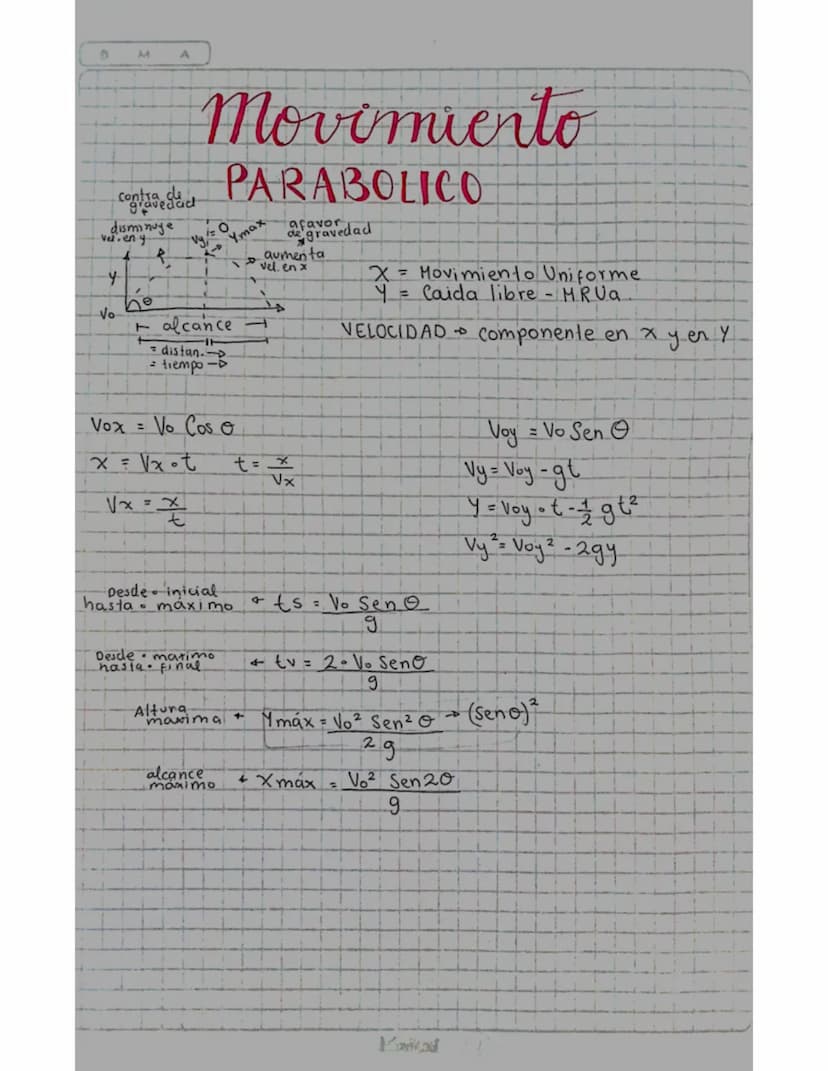 D M A
Movimiento
PARABOLICO
contra de
gravedad
disminuye
vel. en y
Vy = 0
Ymax
afavor
de gravedad
aumenta
vel. en x
Y
θ
Vo
alcance
= distan. →
= tiempo →
X = Movimiento Uniforme
Y = Caida libre - MRUa.
VELOCIDAD → componente en x y en Y
Vox = Vo Cos θ
x = Vx • t t = x/Vx
Vx = x/t
Voy = Vo Sen θ
Vy = Voy - gt
Y = Voy • t - 1/2 gt²
Vy² = Voy² - 2gy
Desde • inicial
hasta • máximo ← ts = Vo Sen θ / g
Desde • maximo
hasta • final ← tv = 2 • Vo Sen θ / g
Altura
maxima ← Ymáx = Vo² Sen² θ / 2g → (sen θ)²
alcance
máximo ← Xmáx = Vo² Sen 2θ / g